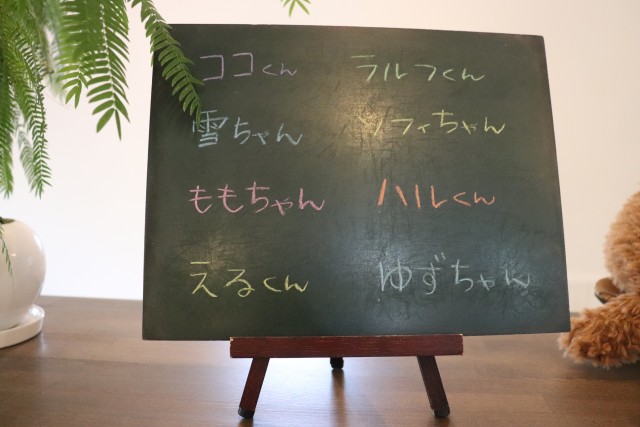 ココくん ラルフくん
雪ちゃん ソフィちゃん
ももちゃん ハルくん
えるくん ゆずちゃん